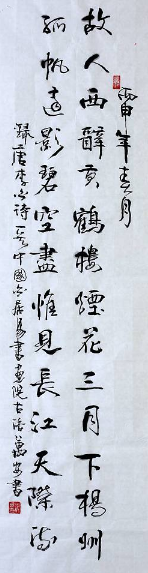 丙申年春月
故人西辭黃鶴樓煙花三月下楊州
孤帆遠影碧空盡惟見長江天際流
錄唐李白詩一首中國白居易書畫院古洛萬安書